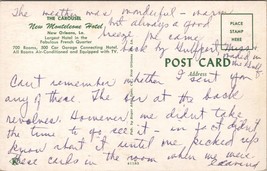 The weather was wonderful - warm
but always a good
breeze. We came
back by Gulfport
THE CAROUSEL
New Monteleone Hotel
New Orleans, La.
Largest Hotel in the
Famous French Quarter
700 Rooms, 500 Car Garage Connecting Hotel.
All Rooms Air-Conditioned and Equipped with TV.
PLACE
STAMP
HERE
POST CARD
Address
Can't remember whether I sent you
any of these. The bar at the back
revolves. However we didn't take
the time to go see it - in fact didn't
know about it until we picked up
these cards in the room when we were
leaving